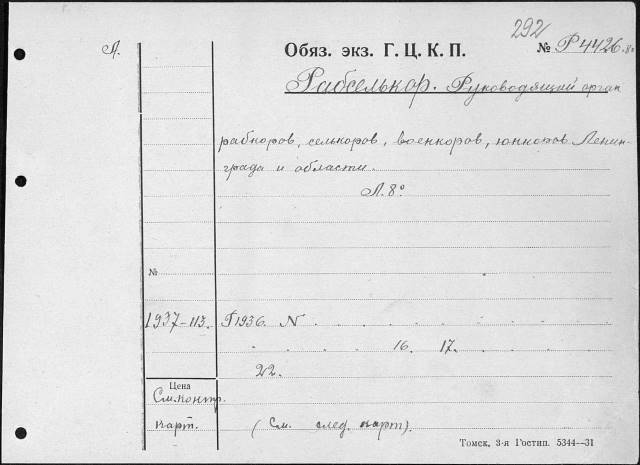 292
Л. Обяз. экз. Г. Ц. К. П. № Р4426.8°
Рабселькор. Руководящий орган
рабкоров, селькоров, военкоров, юнкоров Ленин-
града и области.
Л. 8°
№
1937-113. 1936. N . . . . . . .
. . . . 16. 17.
22.
Цена
См. контр.
карт. (См. след. карт).
Томск, 3-я Гостип. 5344—31